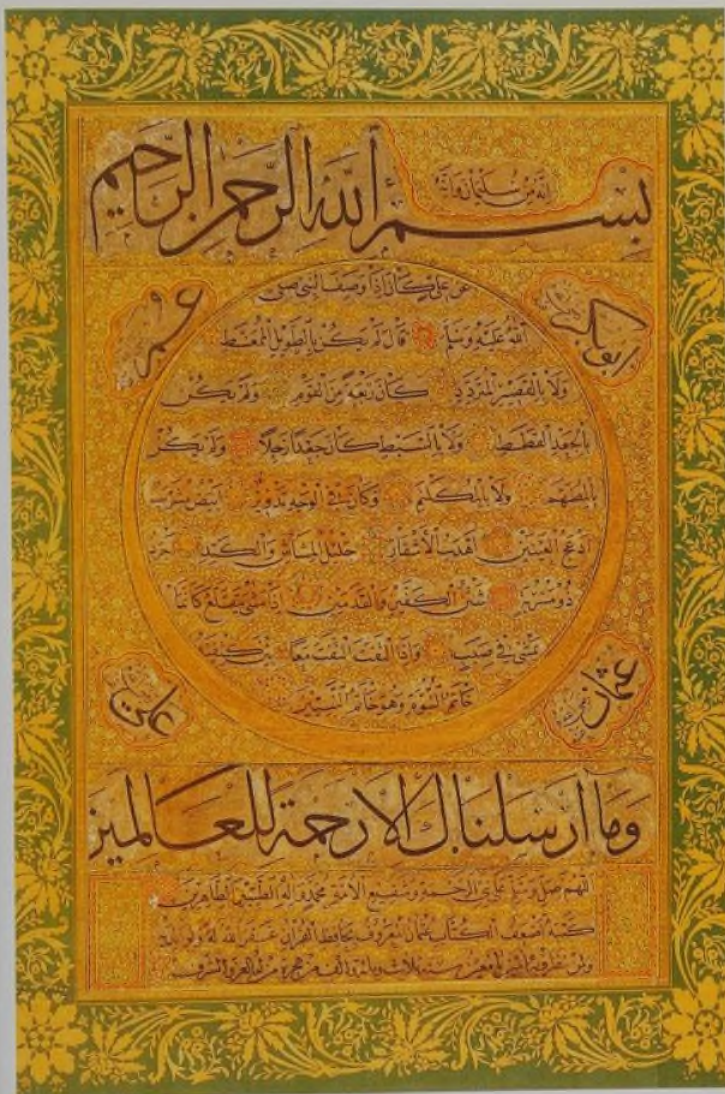 إنه من سليمان وإنه
بسم الله الرحمن الرحيم
أبو بكر
عمر
عن علي كان إذا وصف النبي صلى
الله عليه وسلم قال لم يكن بالطويل الممغط
ولا بالقصير المتردد كان ربعة من القوم ولم يكن
بالجعد القطط ولا بالسبط كان جعدا رجلا ولم يكن
بالمطهم ولا بالمكلثم وكان في الوجه تدوير أبيض مشرب
أدعج العينين أهدب الأشفار جليل المشاش والكتد أجرد
ذو مسربة شثن الكفين والقدمين إذا مشى يتقلع كأنما
يمشي في صبب وإذا التفت التفت معا بين كتفيه
خاتم النبوة وهو خاتم النبيين
عثمان
علي
وما أرسلناك إلا رحمة للعالمين
اللهم صل وسلم على نبي الرحمة وشفيع الأمة محمد وآله الطيبين الطاهرين
كتبه أضعف الكتاب عثمان المعروف بحافظ القرآن غفر الله له ولوالديه
سنة ثلاث ومائة وألف من هجرة من له العز والشرف